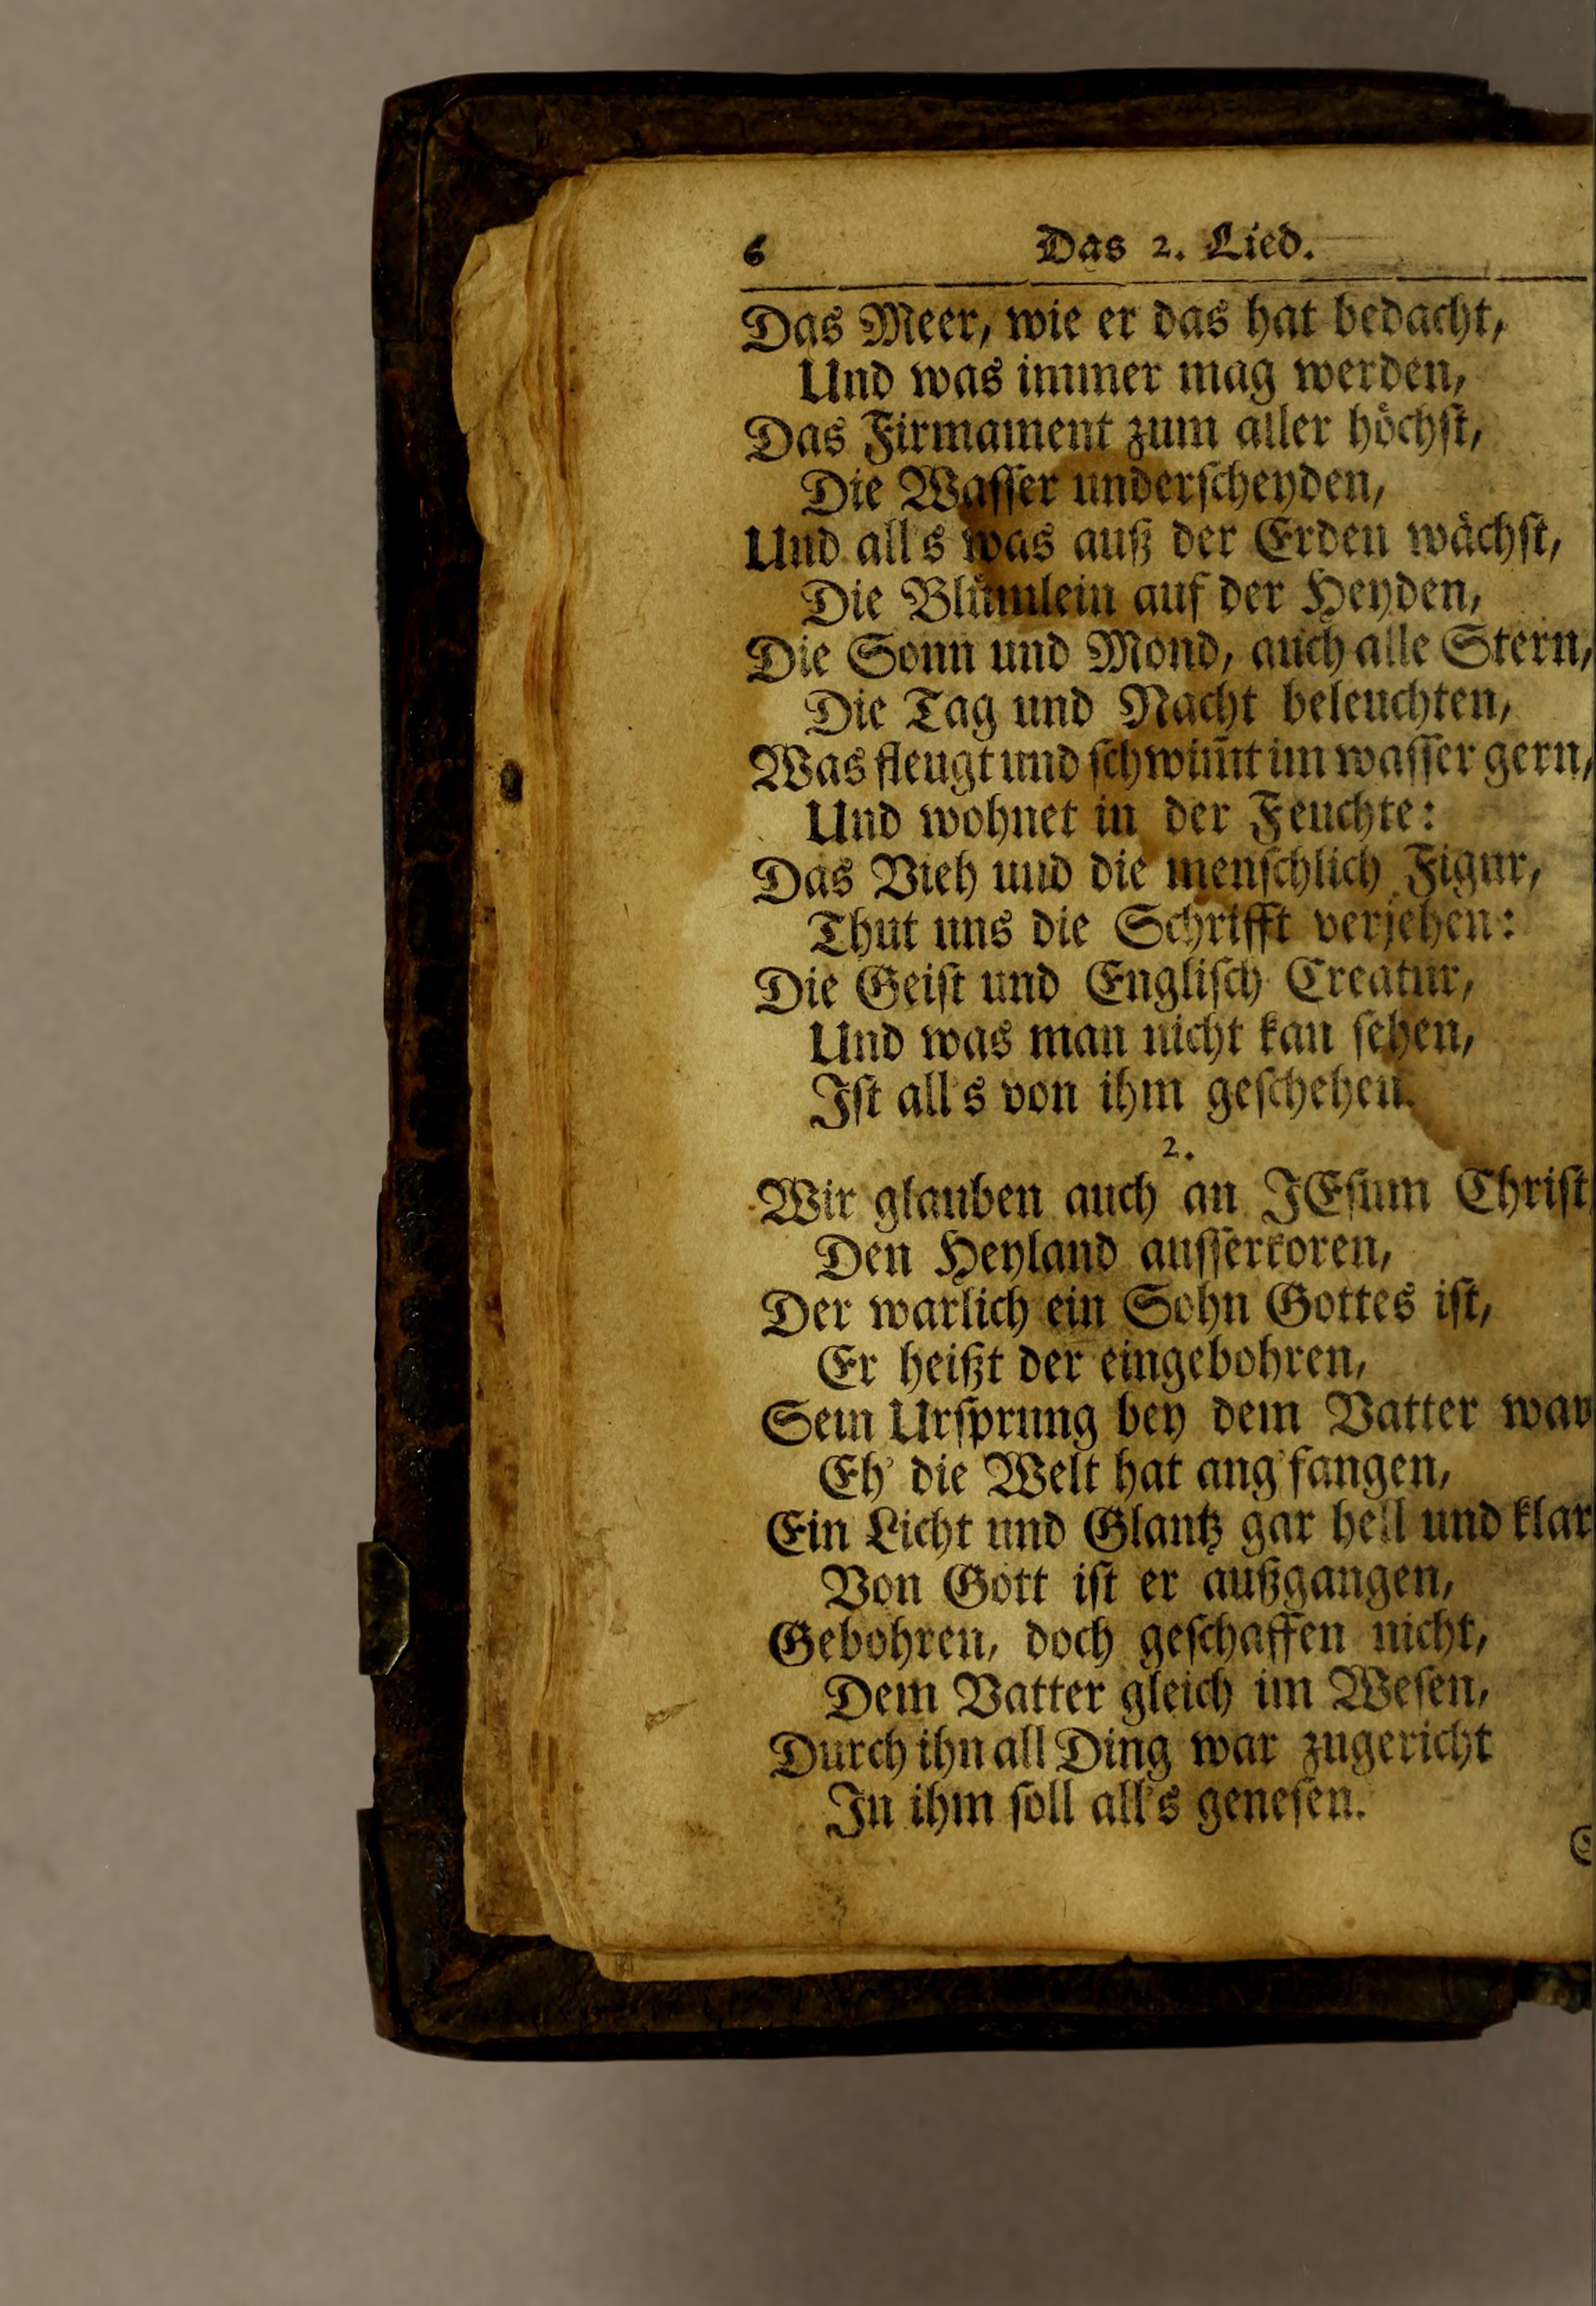 6 Das 2. Lied.
Das Meer, wie er das hat bedacht,
Und was immer mag werden,
Das Firmament zum aller hoͤchſt,
Die Waſſer underſcheyden,
Und all's was auß der Erden waͤchſt,
Die Bluͤmlein auf der Heyden,
Die Sonn und Mond, auch alle Stern,
Die Tag und Nacht beleuchten,
Was fleugt und ſchwim̄t im waſſer gern,
Und wohnet in der Feuchte:
Das Vieh und die menſchlich Figur,
Thut uns die Schrifft verjehen:
Die Geiſt und Engliſch Creatur,
Und was man nicht kan ſehen,
Iſt all's von ihm geſchehen.
2.
Wir glauben auch an JEſum Chriſt
Den Heyland auſſerkoren,
Der warlich ein Sohn Gottes iſt,
Er heißt der eingebohren,
Sein Urſprung bey dem Vatter war
Eh' die Welt hat ang'fangen,
Ein Licht und Glantz gar hell und klar
Von Gott iſt er außgangen,
Gebohren, doch geſchaffen nicht,
Dem Vatter gleich im Weſen,
Durch ihn all Ding war zugericht
In ihm ſoll all's geneſen.